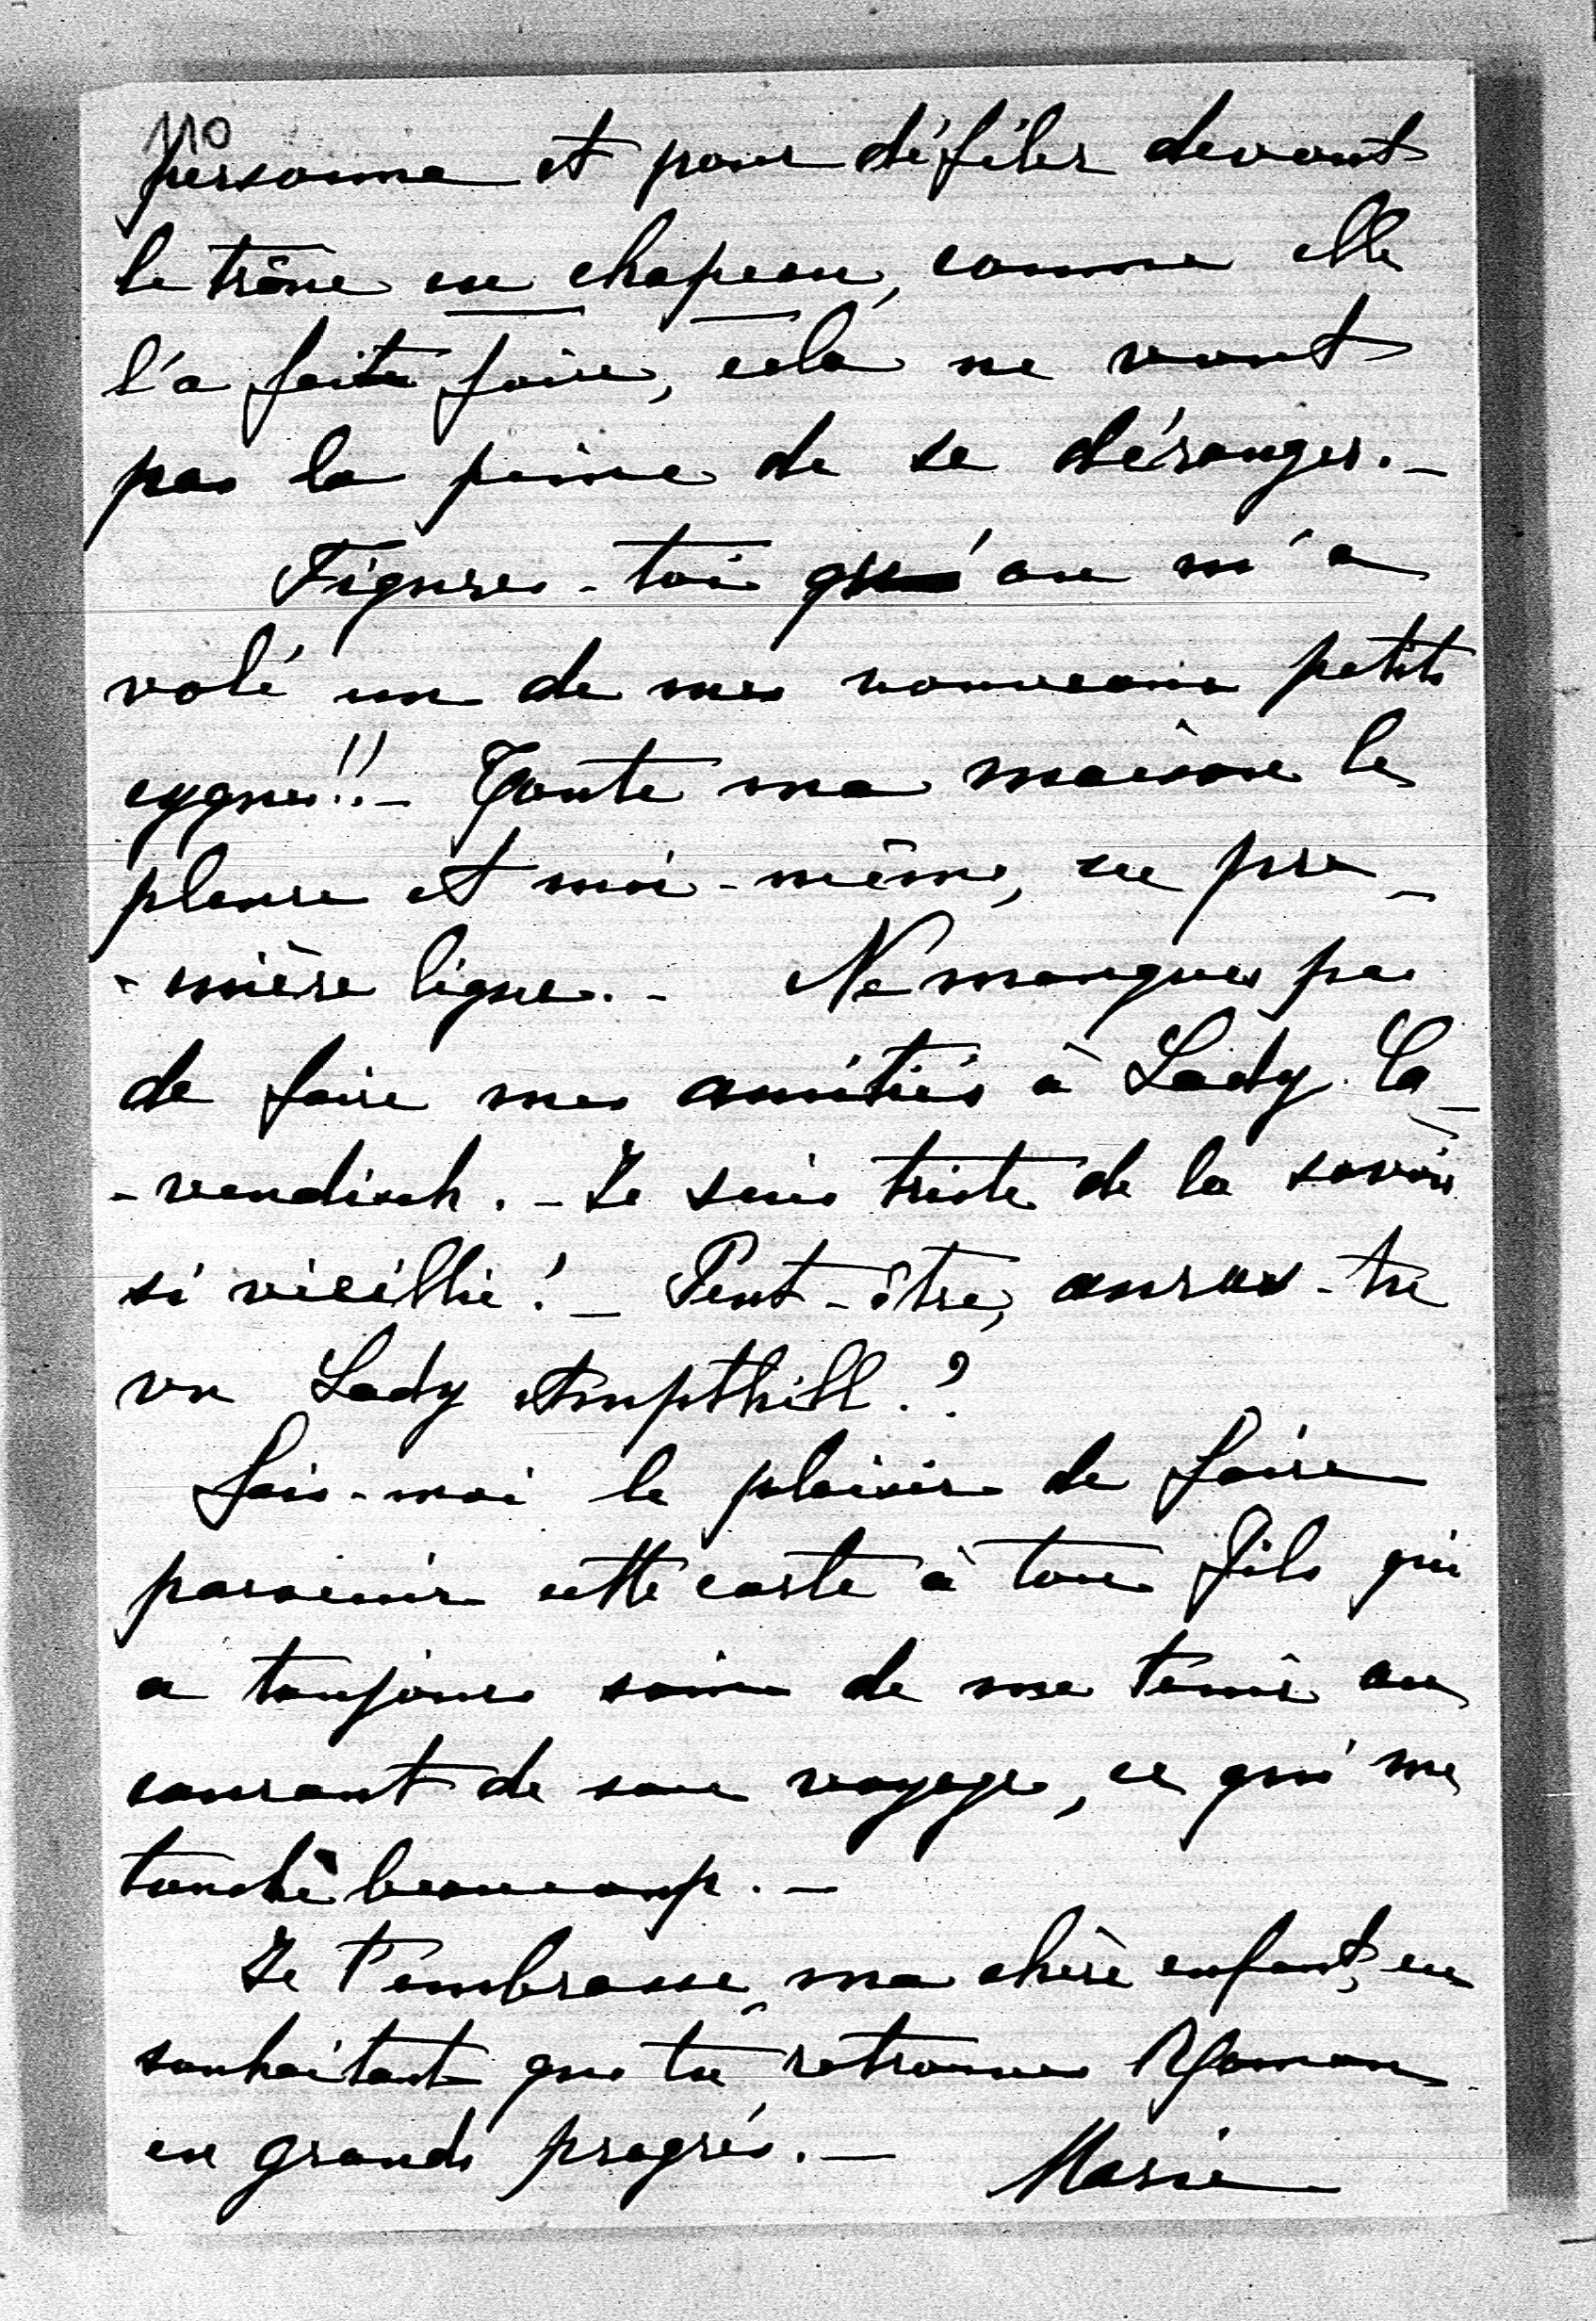 110
personne et pour défiler devant
le trône en chapeau, comme elle
l'a faite faire, cela ne vaut
pas la peine de se déranger. _
Figures-toi qu'on m'a
volé un de mes nouveaux petits
cygnes!! _ Toute ma maison le
pleure et moi-même, en pre_
-mière ligne. - Ne manques pas
de faire mes amitiés à Lady Ca_
-vendish. - Je suis triste de la savoir
si vieillie! _ Peut-être, auras-tu
vu Lady Ampthill.?
Fais-moi le plaisir de faire
parvenir cette carte à ton fils qui
a toujours soin de me tenir au
courant de son voyage, ce qui me
touche beaucoup. _
Je t'embrasse, ma chère enfant, en
souhaitant que tu retrouves
en grands progrès. _ Marie